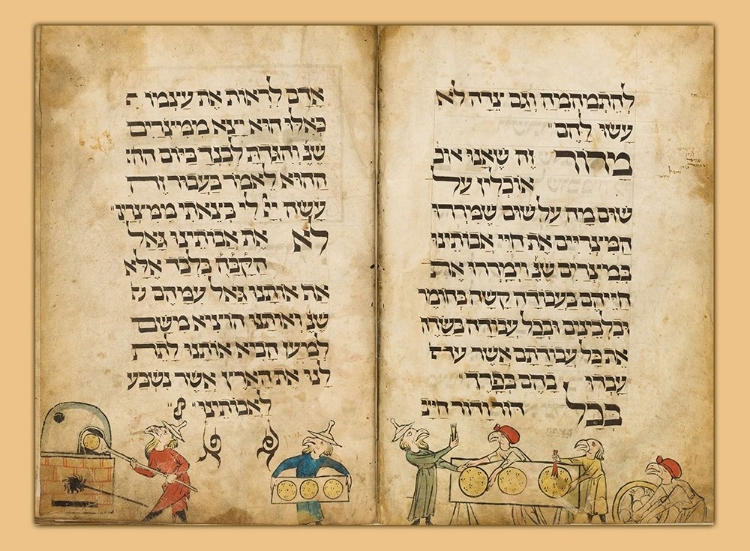 להתמהמה וגם צדה לא
עשו להם
מרור זה שאנו אוכ
אוכלין על
שום מה על שום שמררו
המצריים את חיי אבותינו
במצרים שנ וימררו את
חייהם בעבודה קשה בחומר
ובלבינים ובכל עבודה בשדה
את כל עבודתם אשר
עבדו בהם בפרך
בכל דור ודור חייב
אדם לראות את עצמו
כאלו הוא יצא ממצרים
שנ והגדת לבנך ביום ההי
ההוא לאמר בעבור זה
עשה יי לי בצאתי ממצרים
לא את אבותינו גאל
הקבה בלבד אלא
את אותנו גאל עמהם
שנ ואותנו הוציא משם
למען הביא אותנו לתת
לנו את הארץ אשר נשבע
לאבותינו